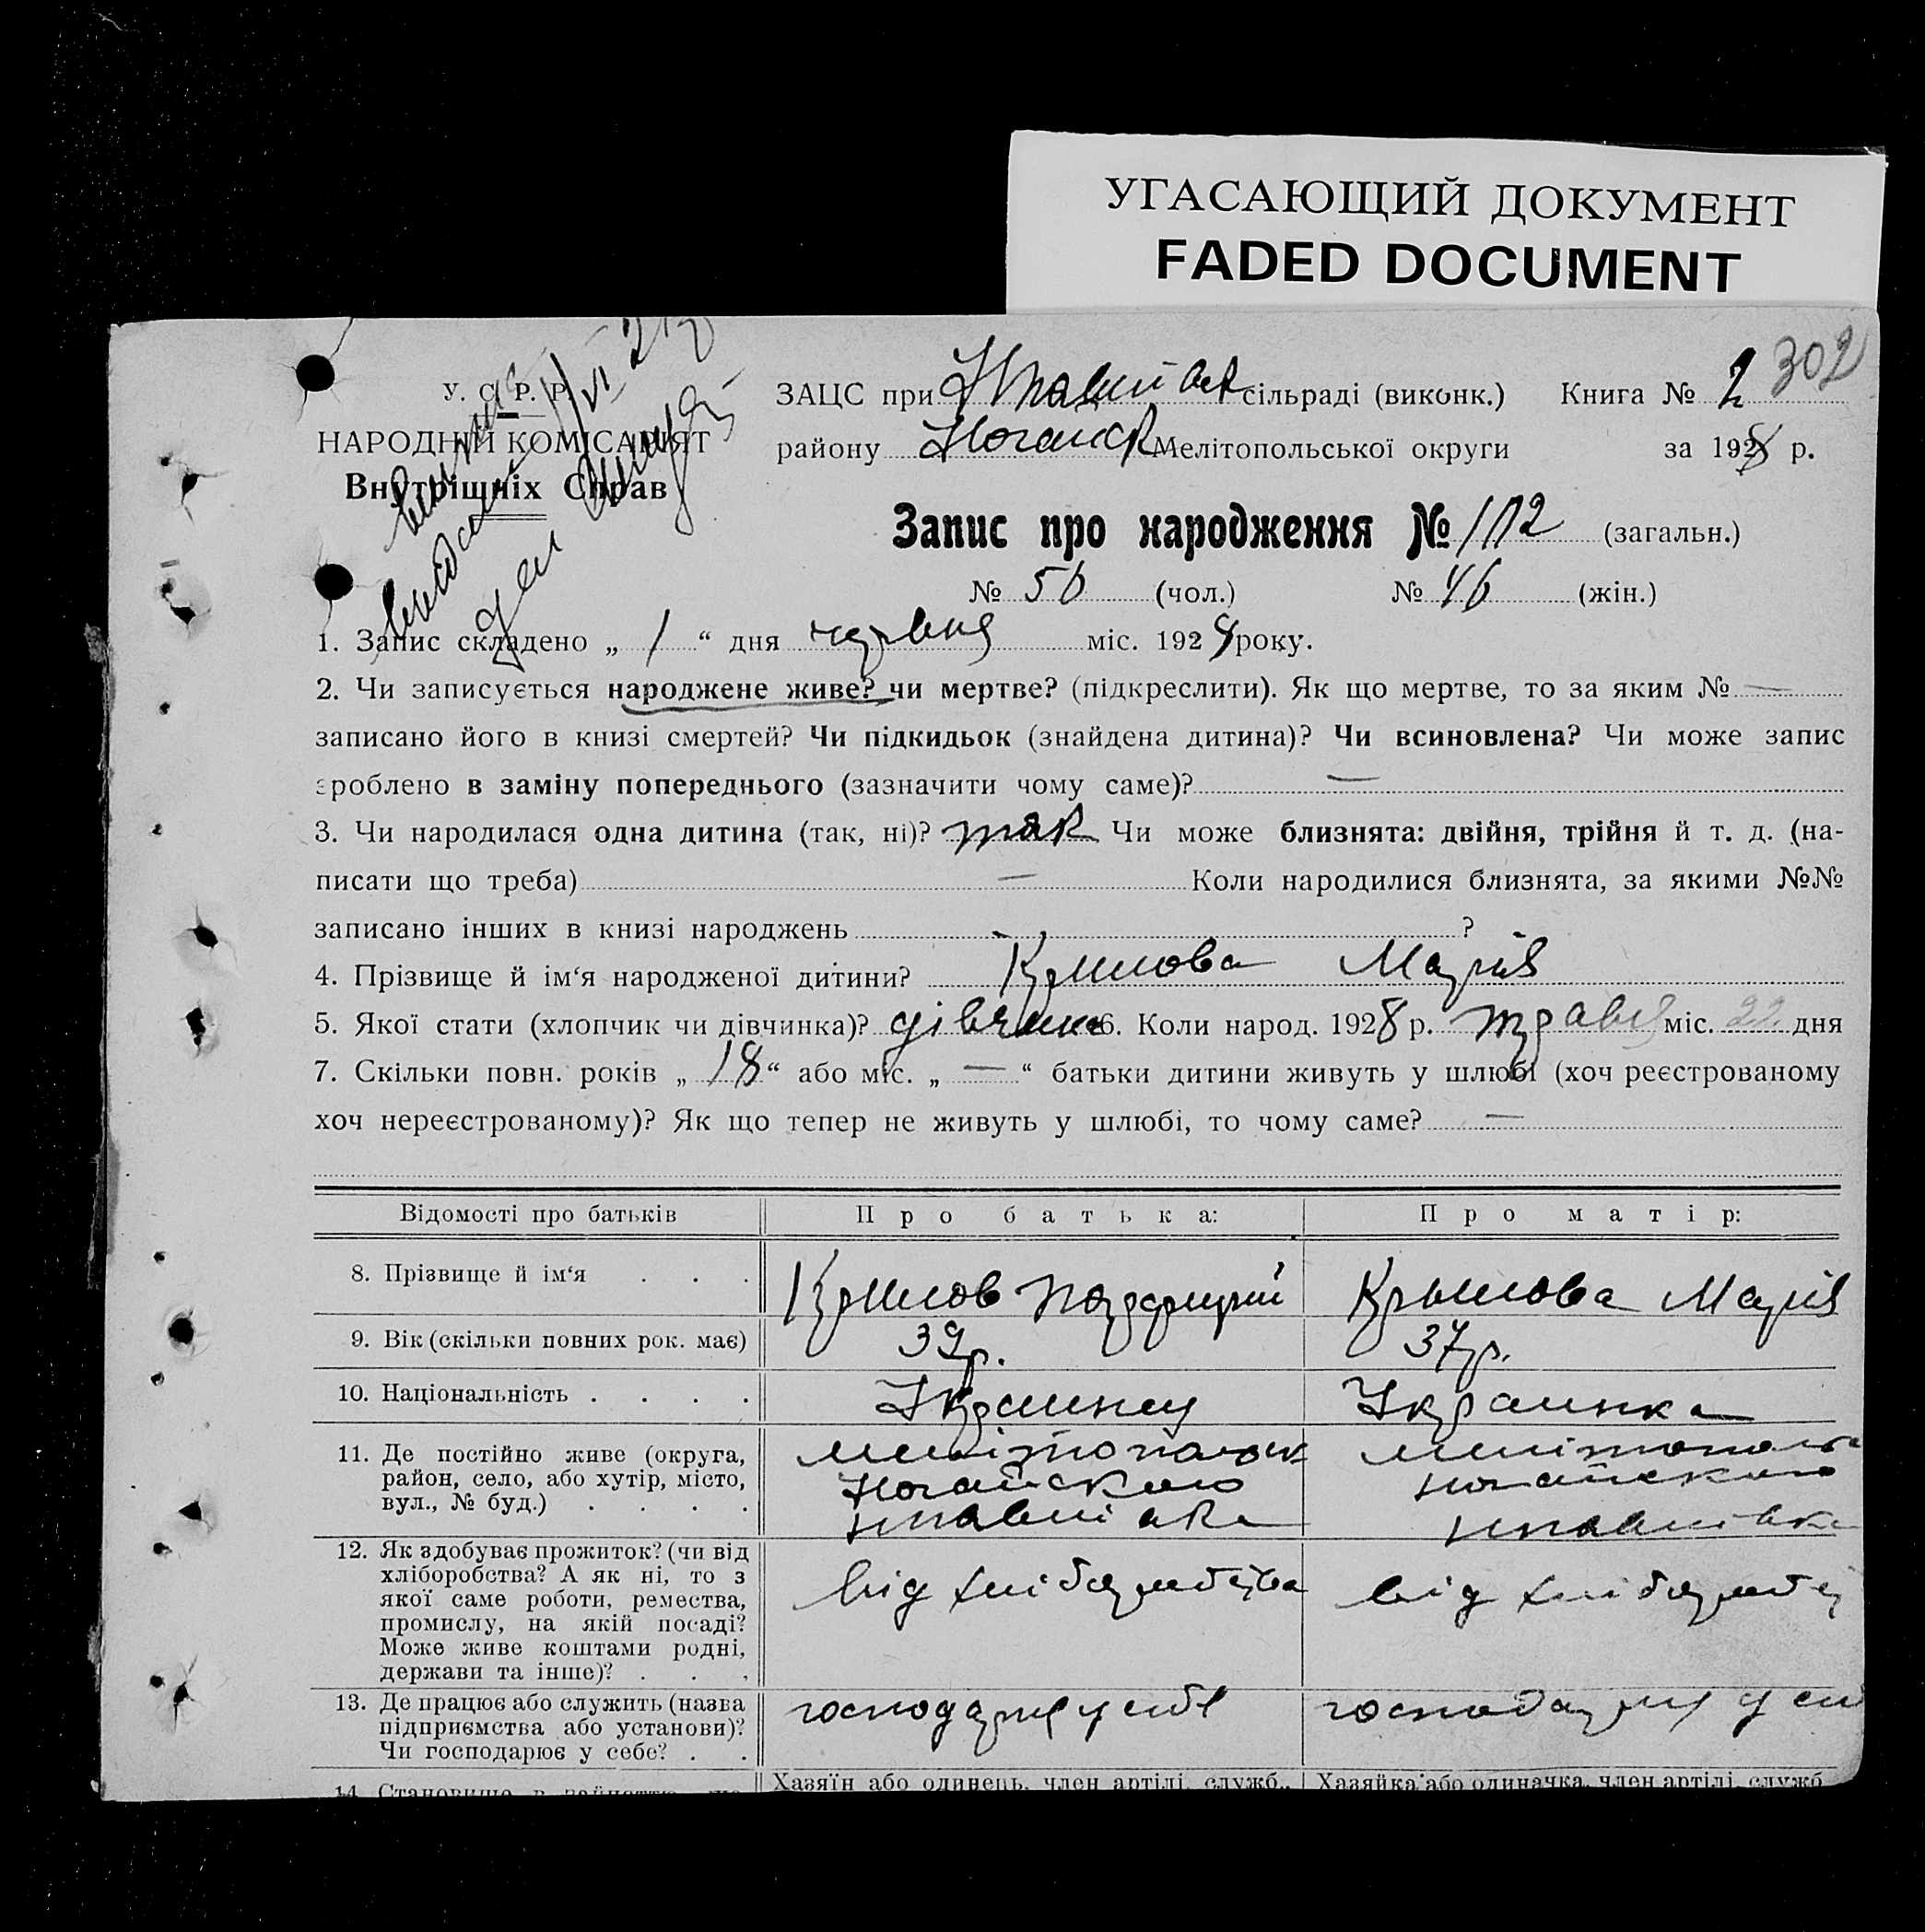 УГАСАЮЩИЙ ДОКУМЕНТ
FADED DOCUMENT
302
У. С. Р. Р.
НАРОДНІЙ КОМІСАРІЯТ
Внутрішніх Справ
ЗАЦС при сільраді (виконк.) Книга № 2
району Ногайск Мелітопольської округи за 1928 р.
Запис про народження № 102 (загальн.)
№ 56 (чол.) № 46 (жін.)
1. Запис складено „ 1 “ дня червня міс. 1928 року.
2. Чи записується народжене живе? чи мертве? (підкреслити). Як що мертве, то за яким № —
записано його в книзі смертей? Чи підкидьок (знайдена дитина)? Чи всиновлена? Чи може запис
зроблено в заміну попереднього (зазначити чому саме)? —
3. Чи народилася одна дитина (так, ні)? так Чи може близнята: двійня, трійня й т. д. (на-
писати що треба) — Коли народилися близнята, за якими №№
записано інших в книзі народжень ?
4. Прізвище й ім‘я народженої дитини? Крилова Марія
5. Якої стати (хлопчик чи дівчинка)? дівчинка 6. Коли народ. 1928 р. травня міс. 22 дня
7. Скільки повн. років „ 18 “ або міс. „ — “ батьки дитини живуть у шлюбі (хоч реєстрованому
хоч нереєстрованому)? Як що тепер не живуть у шлюбі, то чому саме? —
Відомості про батьків Про батька: Про матір:
8. Прізвище й ім‘я . . . Крилов Крылова Марія
9. Вік (скільки повних рок. має) 39 р. 37 р.
10. Національність . . . . Украинец Украинка
11. Де постійно живе (округа,
район, село, або хутір, місто,
вул., № буд.) . . . .
Мелітопольск
Ногайского
Мелітопольск
Ногайского
12. Як здобуває прожиток? (чи від
хліборобства? А як ні, то з
якої саме роботи, ремества,
промислу, на якій посаді?
Може живе коштами родні,
держави та інше)? . . .
від хліборобства
від хліборобст
13. Де працює або служить (назва
підприємства або установи)?
Чи господарює у себе? . .
господарює у себе
господарює у себ
14. Становище в занятті
Хазяїн або одинець, член артілі, служб.,
Хазяйка або одиначка, член артілі, служб